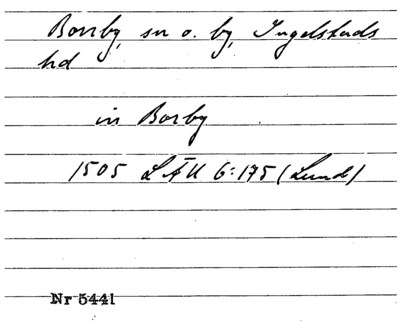 Borrby, sn o. by, Ingelstads
hd
in Borby
1505 LÄU 6:175 (Lund)
Nr 5441